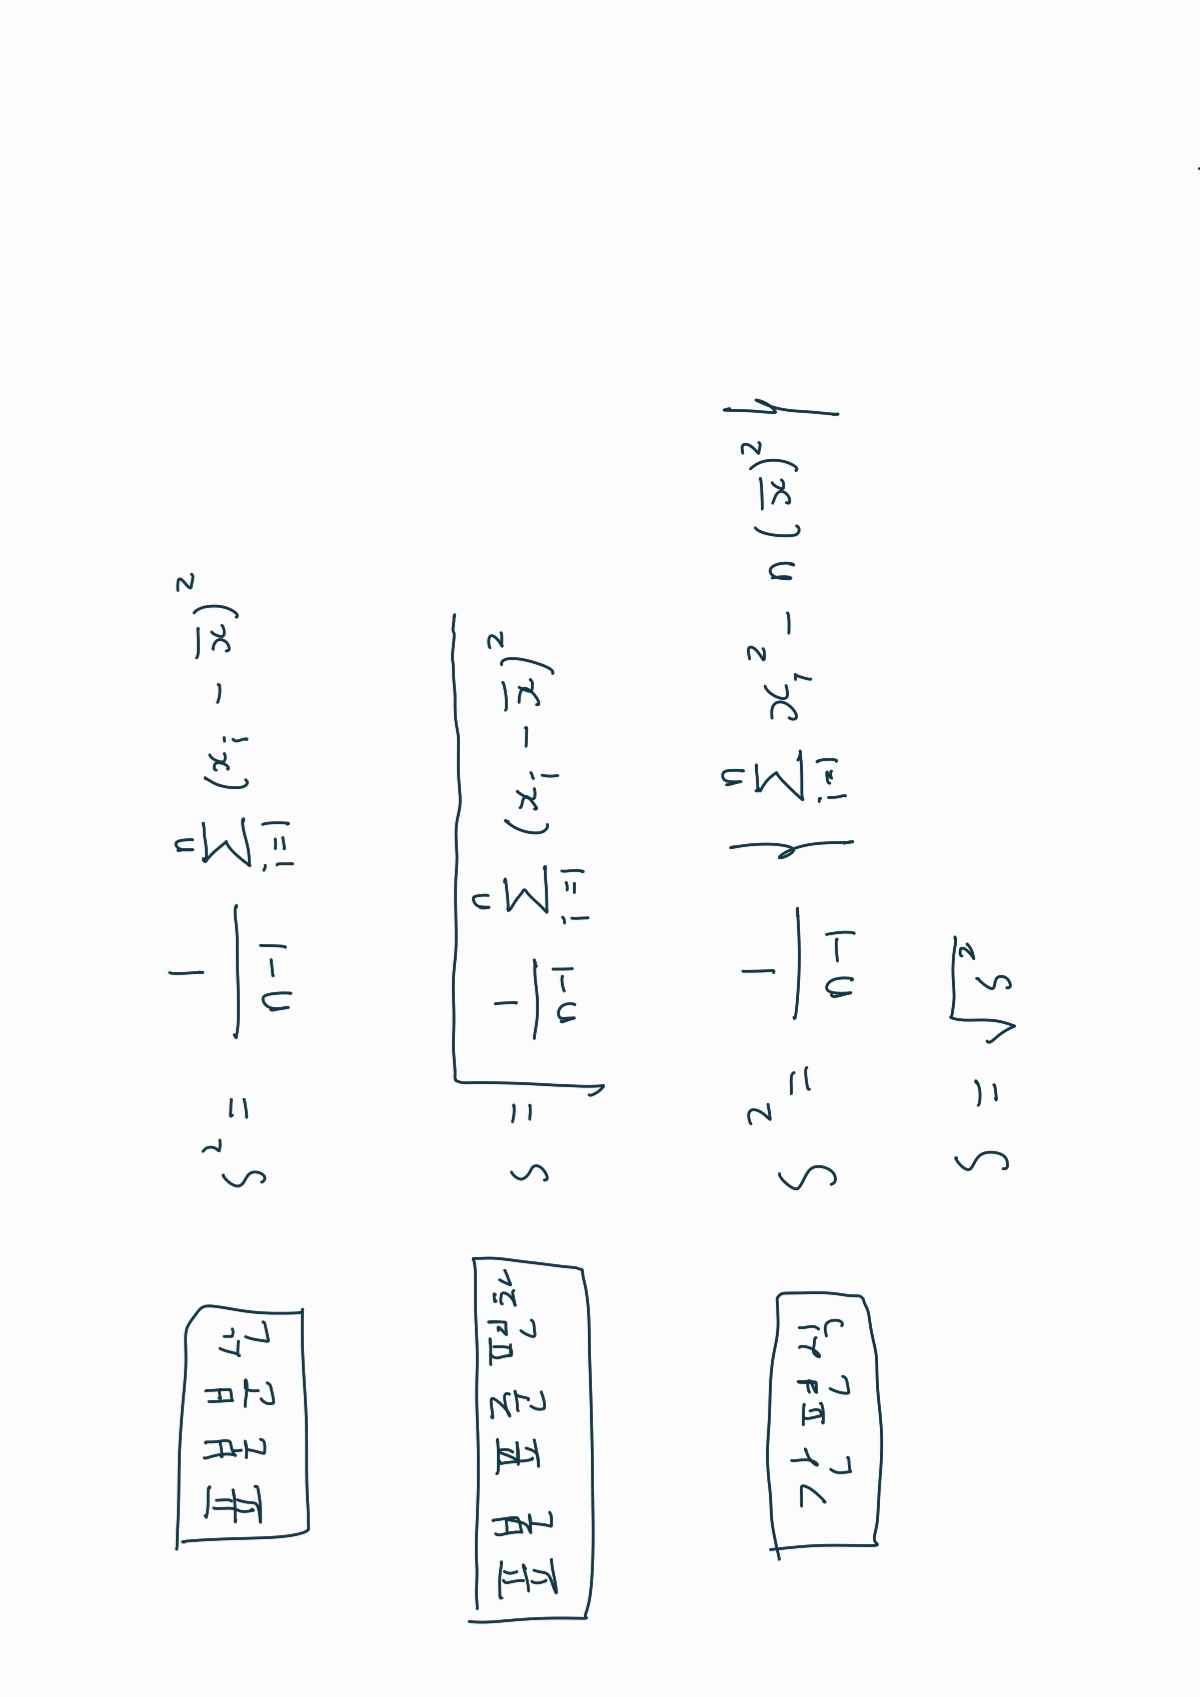 표본분산 s² = \frac{1}{n-1} \sum_{i=1}^{n} (x_i - \overline{x})²
표본 표준편차 s = \sqrt{\frac{1}{n-1} \sum_{i=1}^{n} (x_i - \overline{x})²}
간편식 s² = \frac{1}{n-1} \{ \sum_{i=1}^{n} x_i² - n(\overline{x})² \}
s = \sqrt{s²}